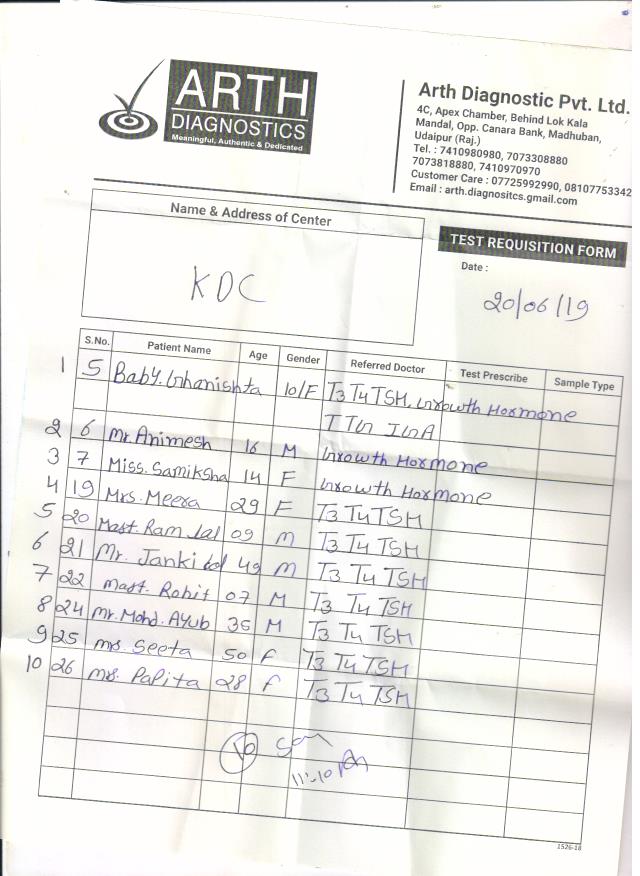 ARTH
DIAGNOSTICS
Meaningful, Authentic & Dedicated
Arth Diagnostic Pvt. Ltd.
4C, Apex Chamber, Behind Lok Kala
Mandal, Opp. Canara Bank, Madhuban,
Udaipur (Raj.)
Tel. : 7410980980, 7073308880
7073818880, 7410970970
Customer Care : 07725992990, 08107753342
Email : arth.diagnositcs.gmail.com
Name & Address of Center
KDC
TEST REQUISITION FORM
Date :
20/06/19
S.No. Patient Name Age Gender Referred Doctor Test Prescribe Sample Type
1 5 Baby. Ghanishta 10/F T3 T4 TSH, Growth Hormone
TTG IGA
2 6 Mr. Animesh 16 M Growth Hormone
3 7 Miss. Samiksha 14 F Growth Hormone
4 19 Mrs. Meera 29 F T3 T4 TSH
5 20 Mast. Ram Lal 09 M T3 T4 TSH
6 21 Mr. Janki Lal 49 M T3 T4 TSH
7 22 Mast. Rohit 07 M T3 T4 TSH
8 24 Mr. Mohd. Ayub 35 M T3 T4 TSH
9 25 Mrs. Seeta 50 F T3 T4 TSH
10 26 Mrs. Papita 28 F T3 T4 TSH
10
11:10
1526-18